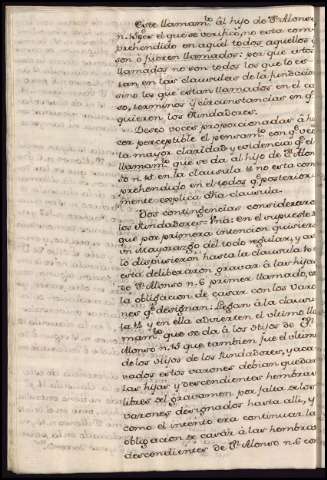 Este llamam.to al hijo de D.n Alonso
n. 15 que es el que se verificó, no esta com
prehendido en aquel todos aquellos q
son ó fueren llamados: por que estos
llamados no son todos los que lo es
tan en las clausulas de la fundacion
sino los que estan llamados en el ca
so, terminos y circunstancias en q.e
quieren los Fundadores.
Deseo voces proporcionadas á ha
cer perceptible el pensam.to con q.e ve
la mayor claridad y evidencia q.e el
llamam.to que se dá al hijo de D.n Alon
so n. 15 en la clausula 16 no esta com
prehendido en el todos q.e posterior
mente explica dha clausula.
Dos contingencias consideraron
los Fundadores. Una: En el supuesto
que por primera intencion quisieron
un Mayorazgo del todo regular, y asi
lo dispusieron hasta la clausula
esta deliberaron gravar á las hijas
de D.n Alonso n. 6 primer llamado, con
la obligacion de casar con los Varo
nes q.e designan: Llegan á la clausu
la 16 y en ella advierten el ultimo lla
mam.to que se dá á los Hijos de D.n
Alonso n. 15 que tambien fue el ultimo
de los Hijos de los Fundadores, y aca
vados estos varones debian quedar
las hijas y descendientes hembras
libres del gravamen por falta de los
varones designados hasta alli, y
como el intento era continuar la
obligacion de casar á las hembras
descendientes de D.n Alonso n. 6 con